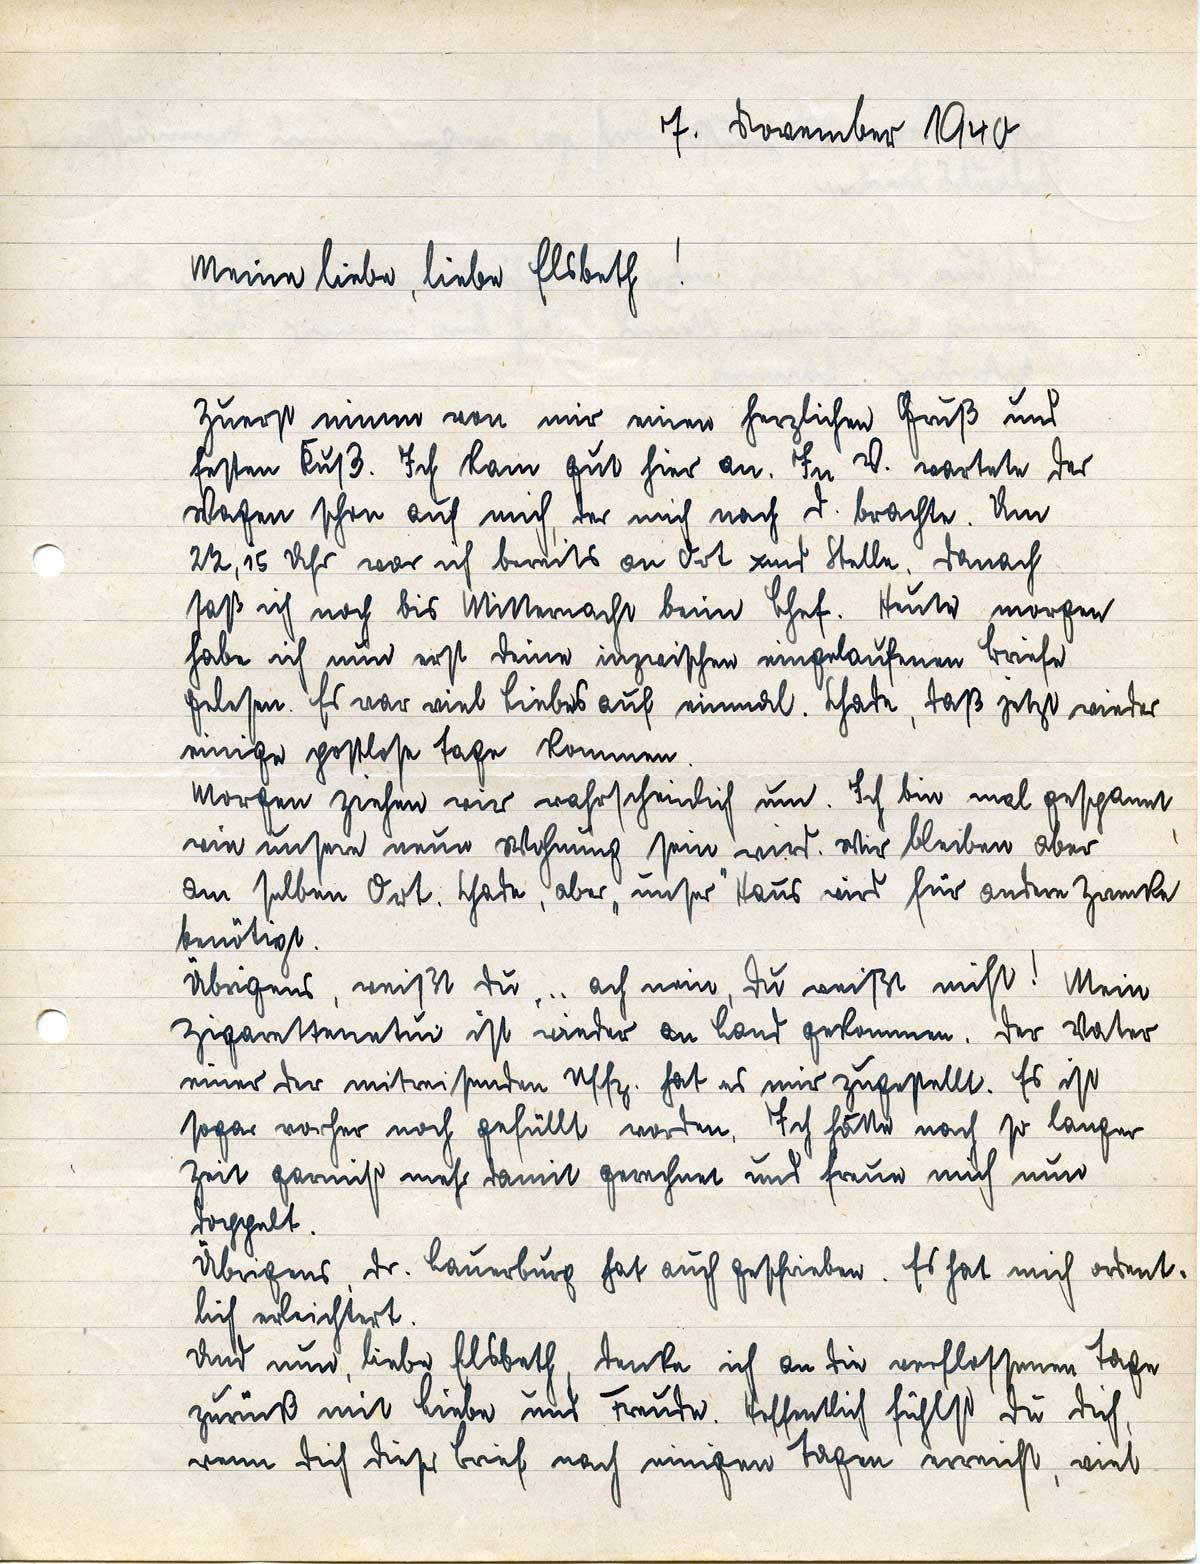 7. November 1940
Meine liebe, liebe Elsbeth!
Zuerst nimm von mir einen herzlichen Gruß und
festen Kuß. Ich kam gut hier an. In V. wartete der
Wagen schon auf mich, der mich nach d. brachte. Um
22,15 Uhr war ich bereits an Ort und Stelle. Danach
saß ich noch bis Mitternacht beim Chef. Heute morgen
habe ich nun erst Deine inzwischen eingelaufenen Briefe
gelesen. Es war viel Liebes auf einmal. Schade, daß jetzt wieder
einige postlose Tage kommen.
Morgen ziehen wir wahrscheinlich um. Ich bin mal gespannt
wie unsere neue Wohnung sein wird. Wir bleiben aber
am selben Ort. Schade, aber „unser" Haus wird für andere Zwecke
benötigt.
Übrigens, weißt Du, .. ach nein, Du weißt nicht! Mein
Zigarettenetui ist wieder an Land gekommen. Der Vater
einer der mitreisenden Uffz. hat es mir zugestellt. Es ist
sogar vorher noch gefüllt worden. Ich hätte nach so langer
Zeit garnicht mehr damit gerechnet und freue mich nun
doppelt.
Übrigens, Dr. Lauerburg hat auch geschrieben. Es hat mich ordent-
lich erleichtert.
Und nun, liebe Elsbeth, denke ich an die verflossenen Tage
zurück mit Liebe und Freude. Hoffentlich fühlst Du Dich,
wenn Dich dieser Brief nach einigen Tagen erreicht, viel